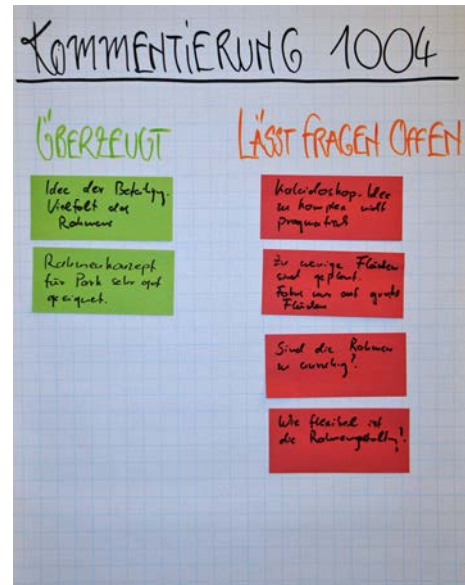 KOMMENTIERUNG 1004
ÜBERZEUGT
Idee der
Vielfalt des
Rahmens
Rahmenkonzept
für Park sehr gut
geeignet.
LÄSST FRAGEN OFFEN
Kaleidoskop-Idee
zu komplex nicht
pragmatisch
Zu wenige Flächen
sind geplant.
Fokus nur auf
Flächen
Sind die Rahmen
zu
Wie flexibel ist
die Rahmengestaltung?